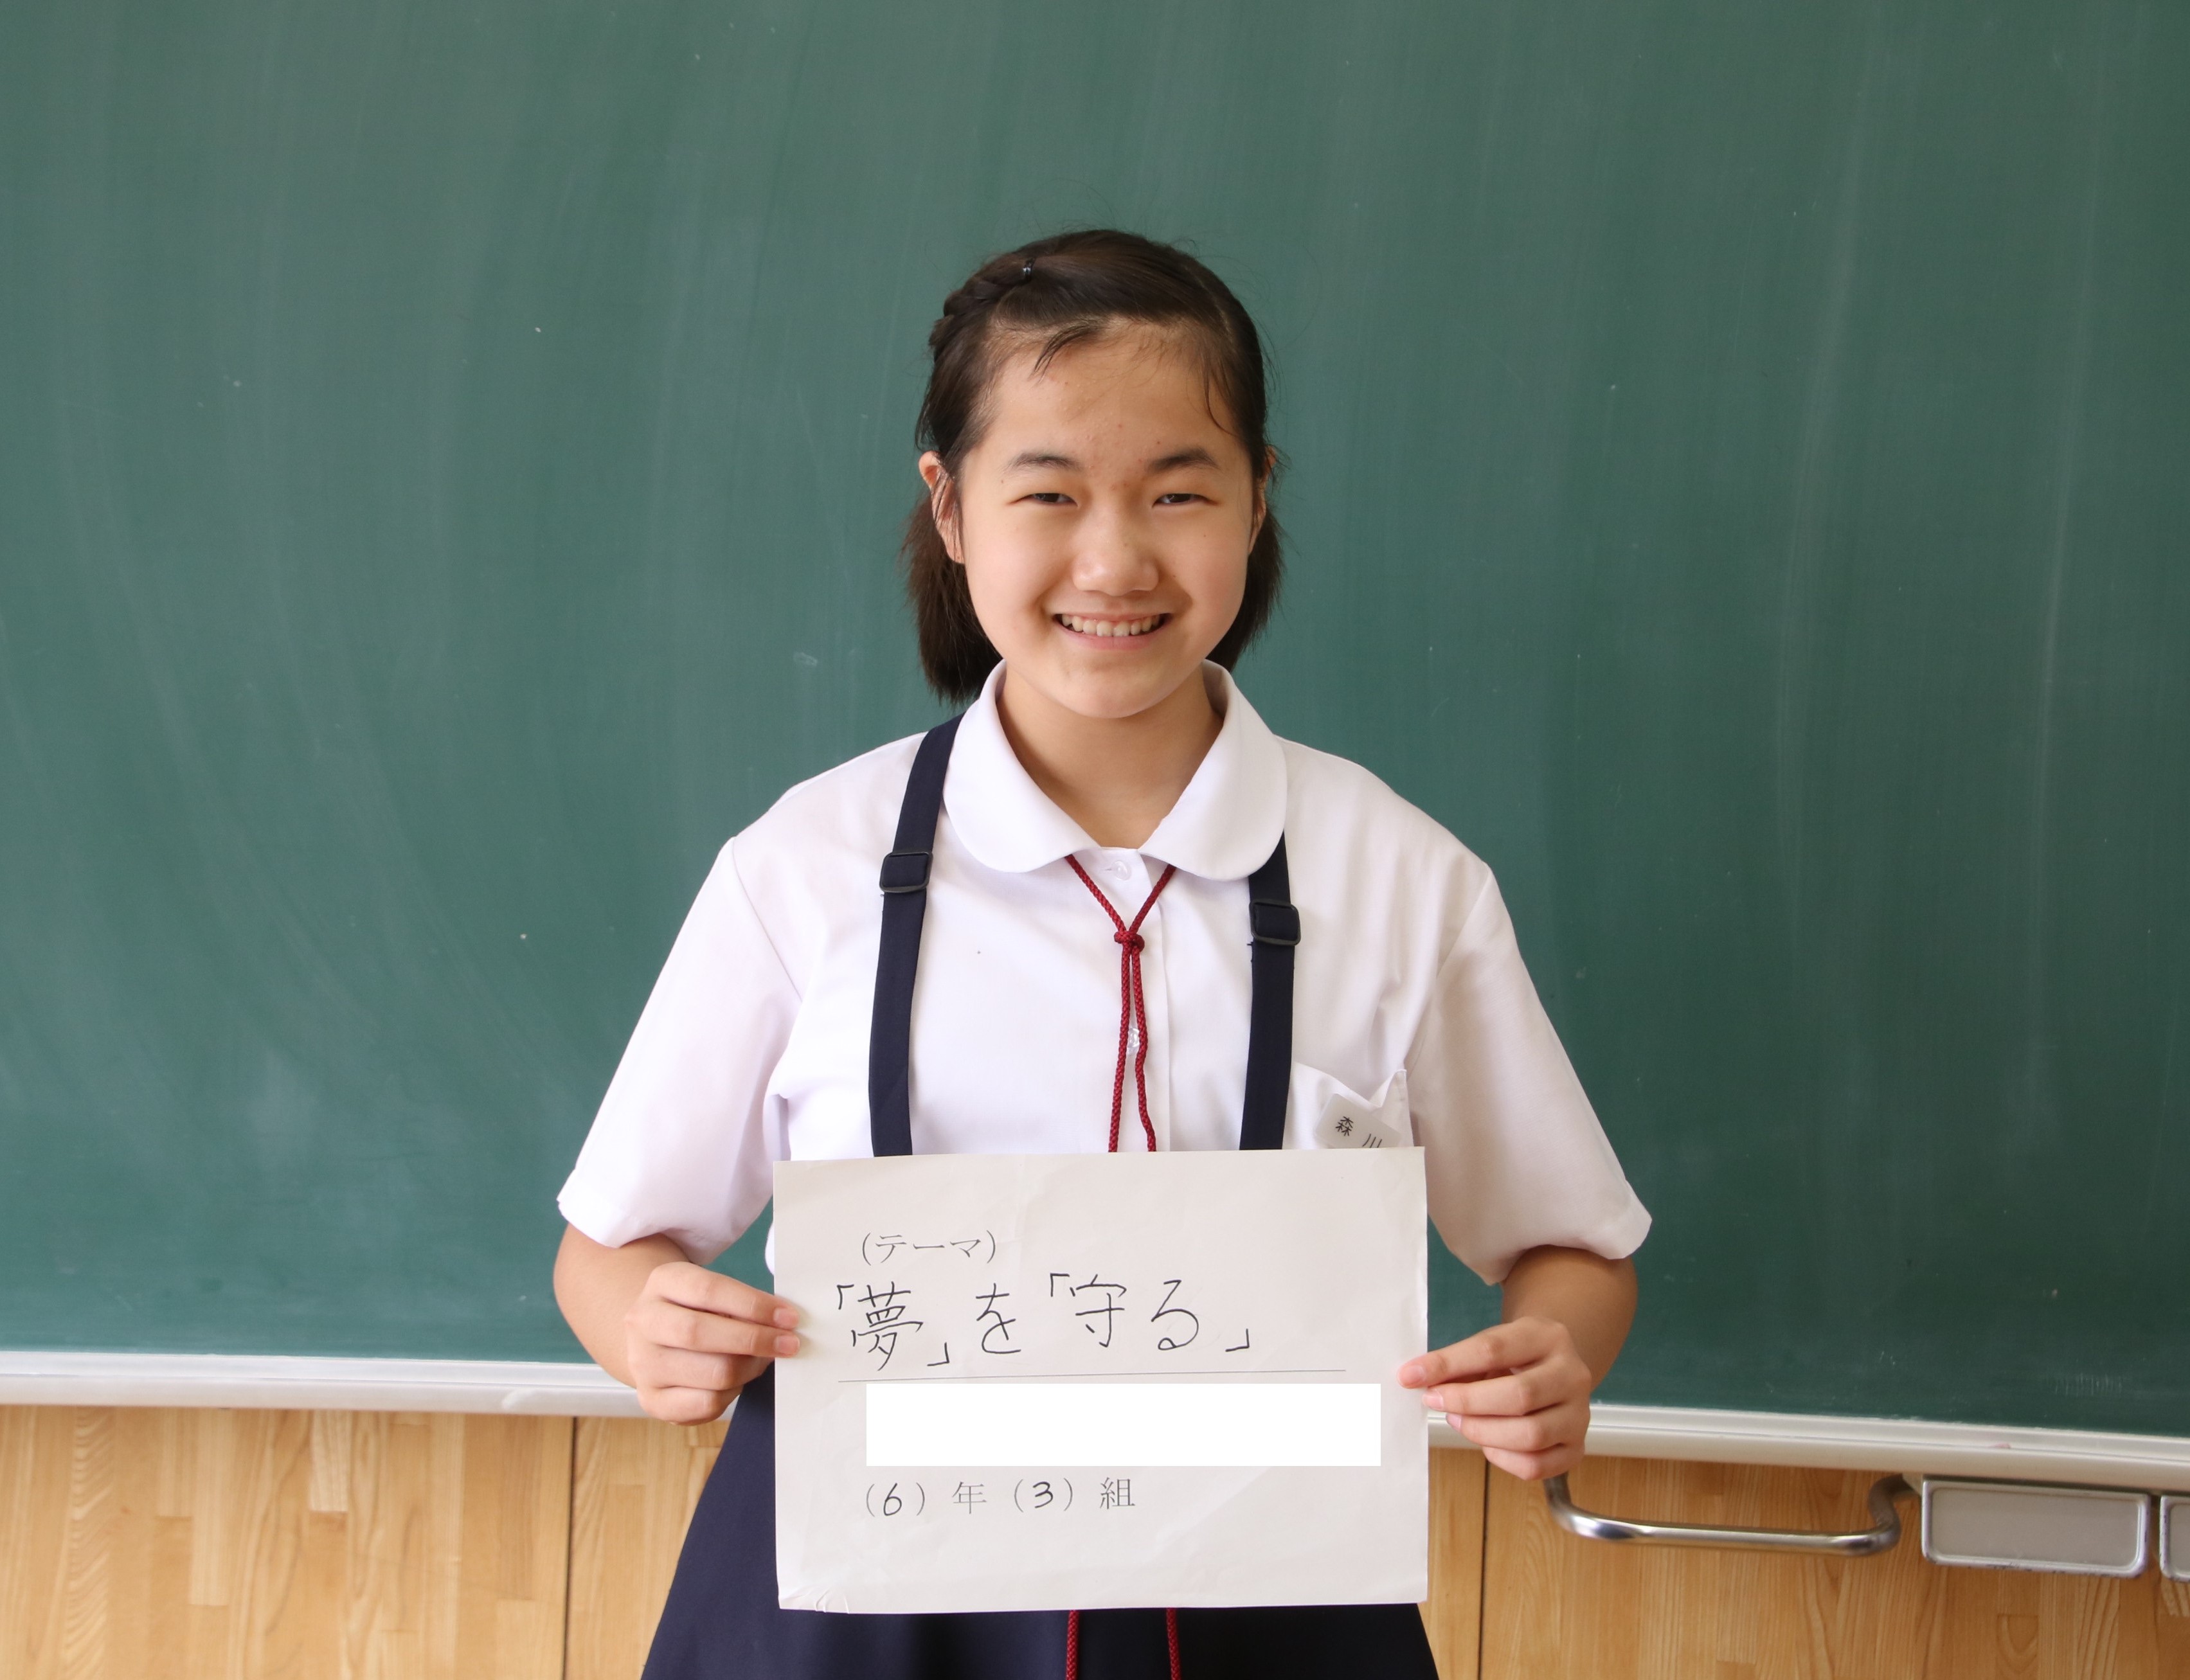 森川
(テーマ)
「夢」を「守る」
(6) 年 (3) 組